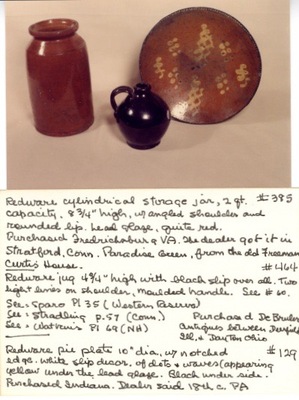 Redware cylindrical storage jar, 2 qt. #385
capacity. 8 3/4" high, w/ angled shoulders and
rounded lip. Lead glaze, quite red.
Purchased Fredrichsburg VA. The dealer got it in
Stratford, Conn. Paradise Green, from the old Freeman
Curtis House. #464
Redware jug 4 3/4" high with black slip over all. Two
light lines on shoulder, moulded handle. See # 60.
See: Sparo Pl 35 (Western Reserve)
See: Stradling p.57 (Conn.) Purchased De Bruler
See: Watkins Pl 69 (NH) Antiques between
Ill. & Dayton Ohio
Redware pie plate 10" dia. w/ notched #129
edge. White slip decor. of dots & waves (appearing
yellow under the lead glaze. Black under side.
Purchased Indiana. Dealer said 18th c. PA